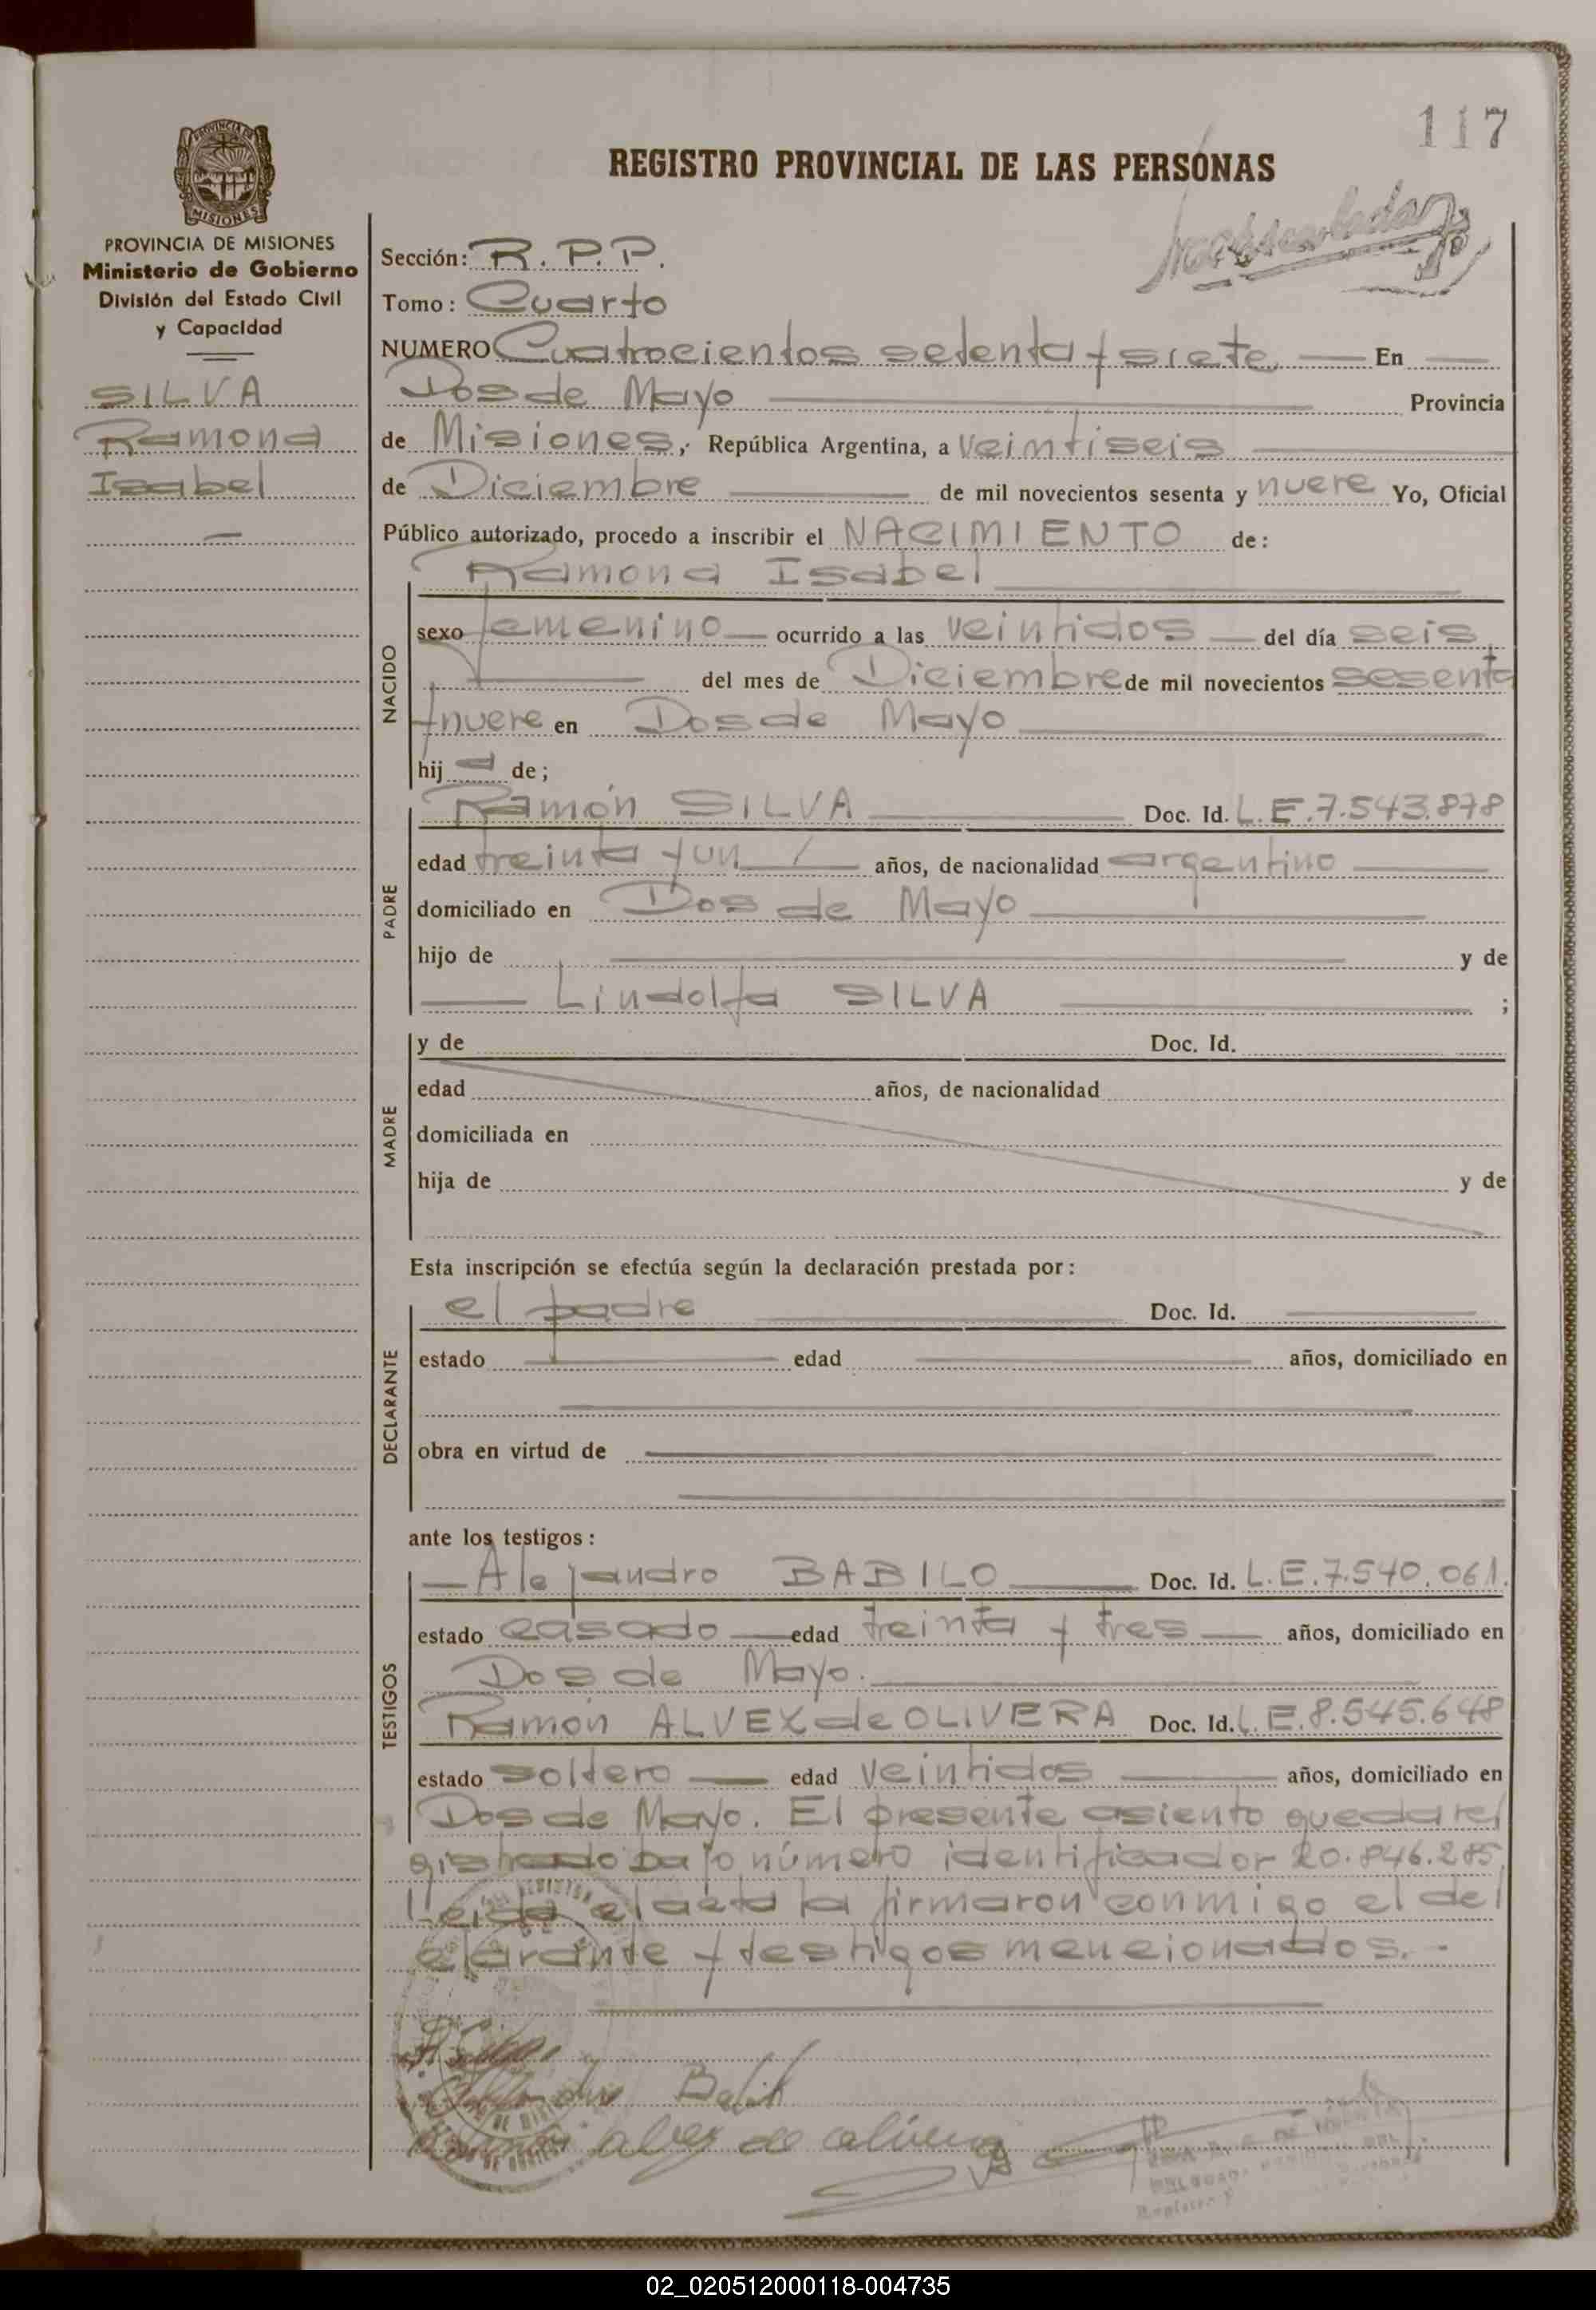 117
REGISTRO PROVINCIAL DE LAS PERSONAS
PROVINCIA DE MISIONES
PROVINCIA DE MISIONES
Ministerio de Gobierno
División del Estado Civil
y Capacidad
SILVA
Ramona
Isabel
Sección: R. P. P.
Tomo: Cuarto
NUMERO Cuatrocientos setenta y siete En
Dos de Mayo Provincia
de Misiones, República Argentina, a veintiseis
de Diciembre de mil novecientos sesenta y nueve Yo, Oficial
Público autorizado, procedo a inscribir el NACIMIENTO de:
NACIDO
Ramona Isabel
sexo femenino ocurrido a las veintidos del día seis
del mes de Diciembre de mil novecientos sesenta
y nueve en Dos de Mayo
hij a de;
PADRE
Ramón SILVA Doc. Id. L.E.7.543.878
edad treinta y un años, de nacionalidad argentino
domiciliado en Dos de Mayo
hijo de y de
Lindolfa SILVA ;
MADRE
y de Doc. Id.
edad años, de nacionalidad
domiciliada en
hija de y de
Esta inscripción se efectúa según la declaración prestada por:
DECLARANTE
el padre Doc. Id.
estado edad años, domiciliado en
obra en virtud de
ante los testigos:
TESTIGOS
Alejandro BABILO Doc. Id. L.E.7.540.061.
estado casado edad treinta y tres años, domiciliado en
Dos de Mayo.
Ramón ALVEX de OLIVERA Doc. Id. L.E.8.545.648
estado soltero edad veintidos años, domiciliado en
Dos de Mayo. El presente asiento queda re/
gistrado bajo número identificador 20.846.285
Leida el acta la firmaron conmigo el de/
clarante y testigos mencionados.-
02_020512000118-004735